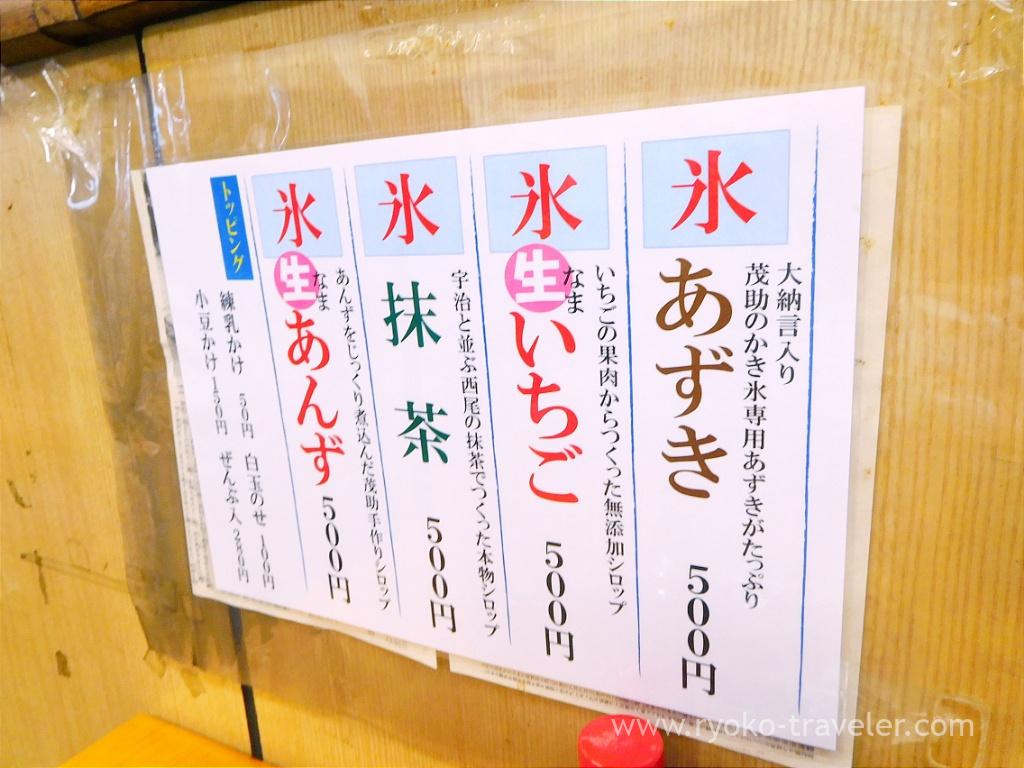 大納言入り
茂助のかき氷専用あずきがたっぷり
氷
あずき
500円
いちごの果肉からつくった無添加シロップ
氷
生いちご
なま
500円
宇治と並ぶ西尾の抹茶でつくった本物シロップ
氷
抹茶
500円
あんずをじっくり煮込んだ茂助手作りシロップ
氷
生あんず
なま
500円
トッピング
練乳かけ 50円 白玉のせ 100円
小豆かけ 150円 ぜんぶ入 280円
www.ryoko-traveler.com